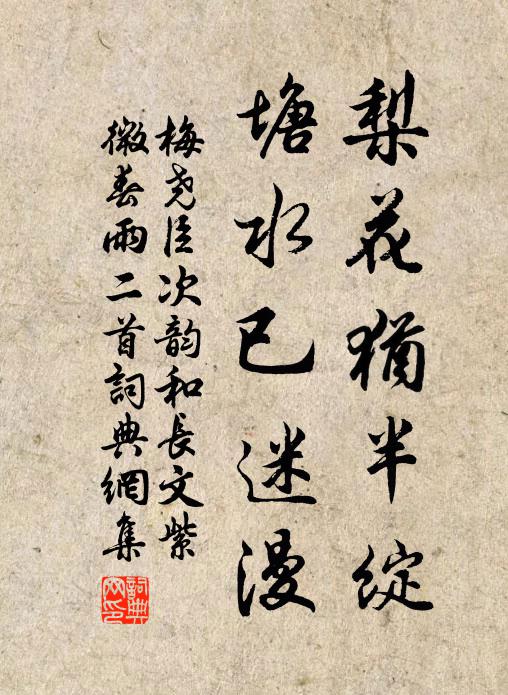 梨花犹半綻
塘水已迷漫
梅尧臣次韵和長文紫
微春雨二首詞典網集
詞典網印